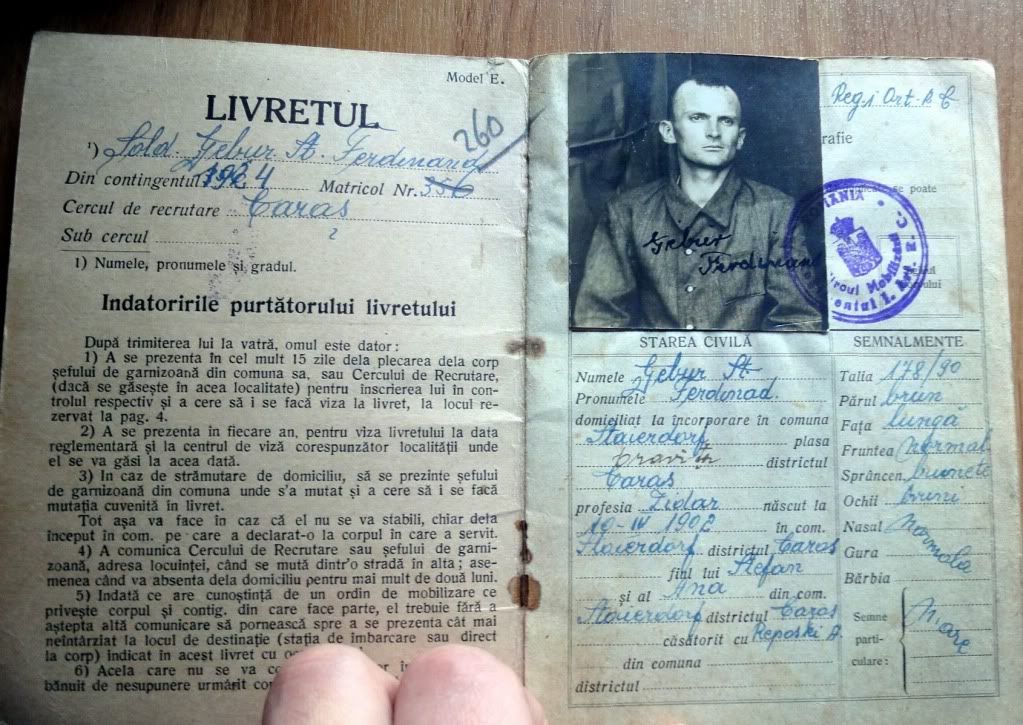 Model E.
LIVRETUL
260
¹) Sold. Gebur St. Ferdinand
Din contingentul 1924 Matricol Nr. 356
Cercul de recrutare Caras
Sub cercul
1) Numele, pronumele și gradul.
Indatoririle purtătorului livretului
După trimiterea lui la vatră, omul este dator:
1) A se prezenta în cel mult 15 zile dela plecarea dela corp
șefului de garnizoană din comuna sa, sau Cercului de Recrutare,
(dacă se găsește în acea localitate) pentru înscrierea lui în con-
trolul respectiv și a cere să i se facă viza la livret, la locul re-
zervat la pag. 4.
2) A se prezenta în fiecare an, pentru viza livretului la data
reglementară și la centrul de viză corespunzător localității unde
el se va găsi la acea dată.
3) In caz de strămutare de domiciliu, să se prezinte șefului
de garnizoană din comuna unde s'a mutat și a cere să i se facă
mutația cuvenită în livret.
Tot așa va face în caz că el nu se va stabili, chiar dela
început în com. pe care a declarat-o la corpul în care a servit.
4) A comunica Cercului de Recrutare sau șefului de garni-
zoană, adresa locuinței, când se mută dintr'o stradă în alta; ase-
menea când va absenta dela domiciliu pentru mai mult de două luni.
5) Indată ce are cunoștință de un ordin de mobilizare ce
privește corpul și contig. din care face parte, el trebuie fără a
aștepta altă comunicare să pornească spre a se prezenta cât mai
neîntârziat la locul de destinație (stația de îmbarcare sau direct
la corp) indicat în acest livret cu
6) Acela care nu se va
bănuit de nesupunere urmărit
Reg. 1 Art. A C
rafie
se poate
ROMANIA
Biroul Mobilizarii
Gebur
Ferdinand
STAREA CIVILĂ
Numele Gebur St.
Pronumele Ferdinad.
domiciliat la încorporare în comuna
Staierdorf plasa
Oravița districtul
Caras
profesia Zidar născut la
19-IV 1902 în com.
Staierdorf districtul Caras
fiul lui Stefan
și al Ana din com.
Staierdorf districtul Caras
căsătorit cu Reposki A.
din comuna
districtul
SEMNALMENTE
Talia 178/90
Părul brun
Fața lungă
Fruntea normal
Sprâncen. brunete
Ochii bruni
Nasul Normala
Gura
Bărbia
Semne
parti-
culare: N'are